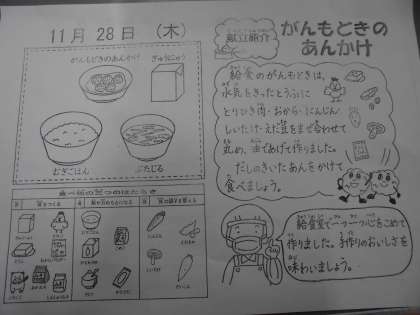 11月 28日 (木)
がんもどきのあんかけ
ぎゅうにゅう
むぎごはん
ぶたじる
献立紹介
がんもどきの
あんかけ
給食のがんもどきは、
水気をきったとうふに
とりひき肉・おから・にんじん・
しいたけ・えだ豆をまぜ合わせて
丸め、油であげて作りました。
だしのきいたあんをかけて
食べましょう。
食べ物の三つのはたらき
給食室で一つ一つ心をこめて
作りました。手作りのおいしさを
味わいましょう。